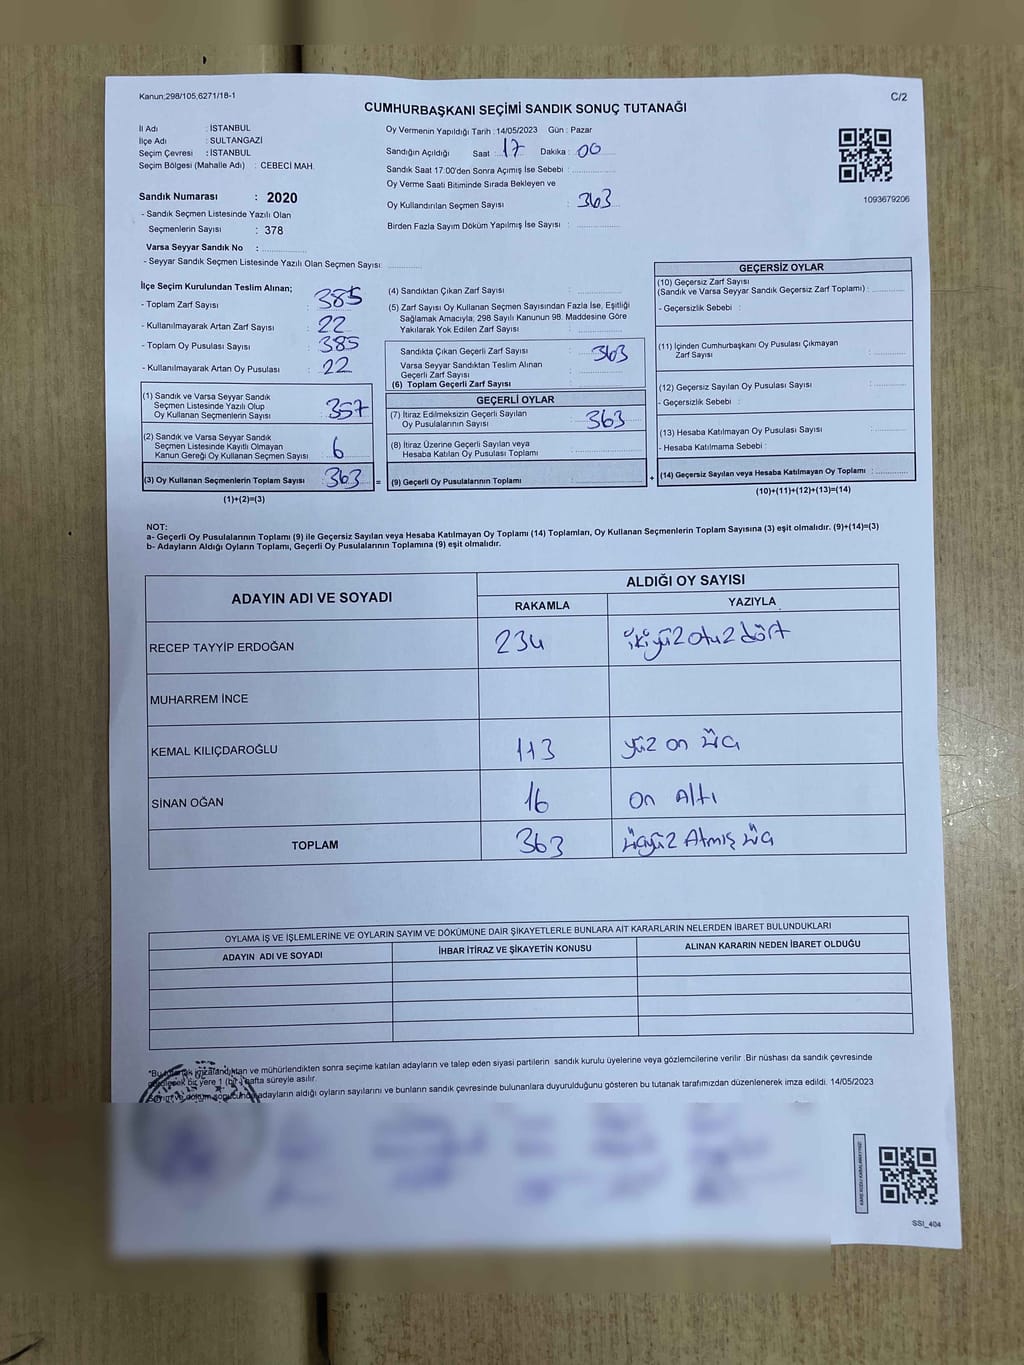 Kanun;298/105,6271/18-1
C/2
CUMHURBAŞKANI SEÇİMİ SANDIK SONUÇ TUTANAĞI
İl Adı : İSTANBUL
İlçe Adı : SULTANGAZİ
Seçim Çevresi : İSTANBUL
Seçim Bölgesi (Mahalle Adı) : CEBECİ MAH.
Sandık Numarası : 2020
- Sandık Seçmen Listesinde Yazılı Olan
Seçmenlerin Sayısı : 378
Varsa Seyyar Sandık No :
- Seyyar Sandık Seçmen Listesinde Yazılı Olan Seçmen Sayısı:
Oy Vermenin Yapıldığı Tarih : 14/05/2023 Gün : Pazar
Sandığın Açıldığı Saat : 17 Dakika : 00
Sandık Saat 17:00'den Sonra Açımış İse Sebebi :
Oy Verme Saati Bitiminde Sırada Bekleyen ve
Oy Kullandırılan Seçmen Sayısı : 363
Birden Fazla Sayım Döküm Yapılmış İse Sayısı :
1093679206
İlçe Seçim Kurulundan Teslim Alınan;
- Toplam Zarf Sayısı : 385
- Kullanılmayarak Artan Zarf Sayısı : 22
- Toplam Oy Pusulası Sayısı : 385
- Kullanılmayarak Artan Oy Pusulası : 22
(1) Sandık ve Varsa Seyyar Sandık
Seçmen Listesinde Yazılı Olup
Oy Kullanan Seçmenlerin Sayısı : 357
(2) Sandık ve Varsa Seyyar Sandık
Seçmen Listesinde Kayıtlı Olmayan
Kanun Gereği Oy Kullanan Seçmen Sayısı : 6
(3) Oy Kullanan Seçmenlerin Toplam Sayısı : 363 =
(1)+(2)=(3)
(4) Sandıktan Çıkan Zarf Sayısı :
(5) Zarf Sayısı Oy Kullanan Seçmen Sayısından Fazla İse, Eşitliği
Sağlamak Amacıyla; 298 Sayılı Kanunun 98. Maddesine Göre
Yakılarak Yok Edilen Zarf Sayısı :
Sandıkta Çıkan Geçerli Zarf Sayısı : 363
Varsa Seyyar Sandıktan Teslim Alınan
Geçerli Zarf Sayısı :
(6) Toplam Geçerli Zarf Sayısı :
GEÇERLİ OYLAR
(7) İtiraz Edilmeksizin Geçerli Sayılan
Oy Pusulalarının Sayısı : 363
(8) İtiraz Üzerine Geçerli Sayılan veya
Hesaba Katılan Oy Pusulası Toplamı :
(9) Geçerli Oy Pusulalarının Toplamı : +
GEÇERSİZ OYLAR
(10) Geçersiz Zarf Sayısı
(Sandık ve Varsa Seyyar Sandık Geçersiz Zarf Toplamı) :
- Geçersizlik Sebebi :
(11) İçinden Cumhurbaşkanı Oy Pusulası Çıkmayan
Zarf Sayısı :
(12) Geçersiz Sayılan Oy Pusulası Sayısı :
- Geçersizlik Sebebi :
(13) Hesaba Katılmayan Oy Pusulası Sayısı :
- Hesaba Katılmama Sebebi :
(14) Geçersiz Sayılan veya Hesaba Katılmayan Oy Toplamı :
(10)+(11)+(12)+(13)=(14)
NOT:
a- Geçerli Oy Pusulalarının Toplamı (9) ile Geçersiz Sayılan veya Hesaba Katılmayan Oy Toplamı (14) Toplamları, Oy Kullanan Seçmenlerin Toplam Sayısına (3) eşit olmalıdır. (9)+(14)=(3)
b- Adayların Aldığı Oyların Toplamı, Geçerli Oy Pusulalarının Toplamına (9) eşit olmalıdır.
ADAYIN ADI VE SOYADI
ALDIĞI OY SAYISI
RAKAMLA YAZIYLA
RECEP TAYYİP ERDOĞAN 234 ikiyüz otuz dört
MUHARREM İNCE
KEMAL KILIÇDAROĞLU 113 yüz on üç
SİNAN OĞAN 16 on Altı
TOPLAM 363 üçyüz Atmış üç
OYLAMA İŞ VE İŞLEMLERİNE VE OYLARIN SAYIM VE DÖKÜMÜNE DAİR ŞİKAYETLERLE BUNLARA AİT KARARLARIN NELERDEN İBARET BULUNDUKLARI
ADAYIN ADI VE SOYADI İHBAR İTİRAZ VE ŞİKAYETİN KONUSU ALINAN KARARIN NEDEN İBARET OLDUĞU
*Bu tutanak imzalandıktan ve mühürlendikten sonra seçime katılan adayların ve talep eden siyasi partilerin sandık kurulu üyelerine veya gözlemcilerine verilir .Bir nüshası da sandık çevresinde
bir yere 1 (bir) hafta süreyle asılır.
Sayım ve döküm sonucunda adayların aldığı oyların sayılarını ve bunların sandık çevresinde bulunanlara duyurulduğunu gösteren bu tutanak tarafımızdan düzenlenerek imza edildi. 14/05/2023
SSI_404